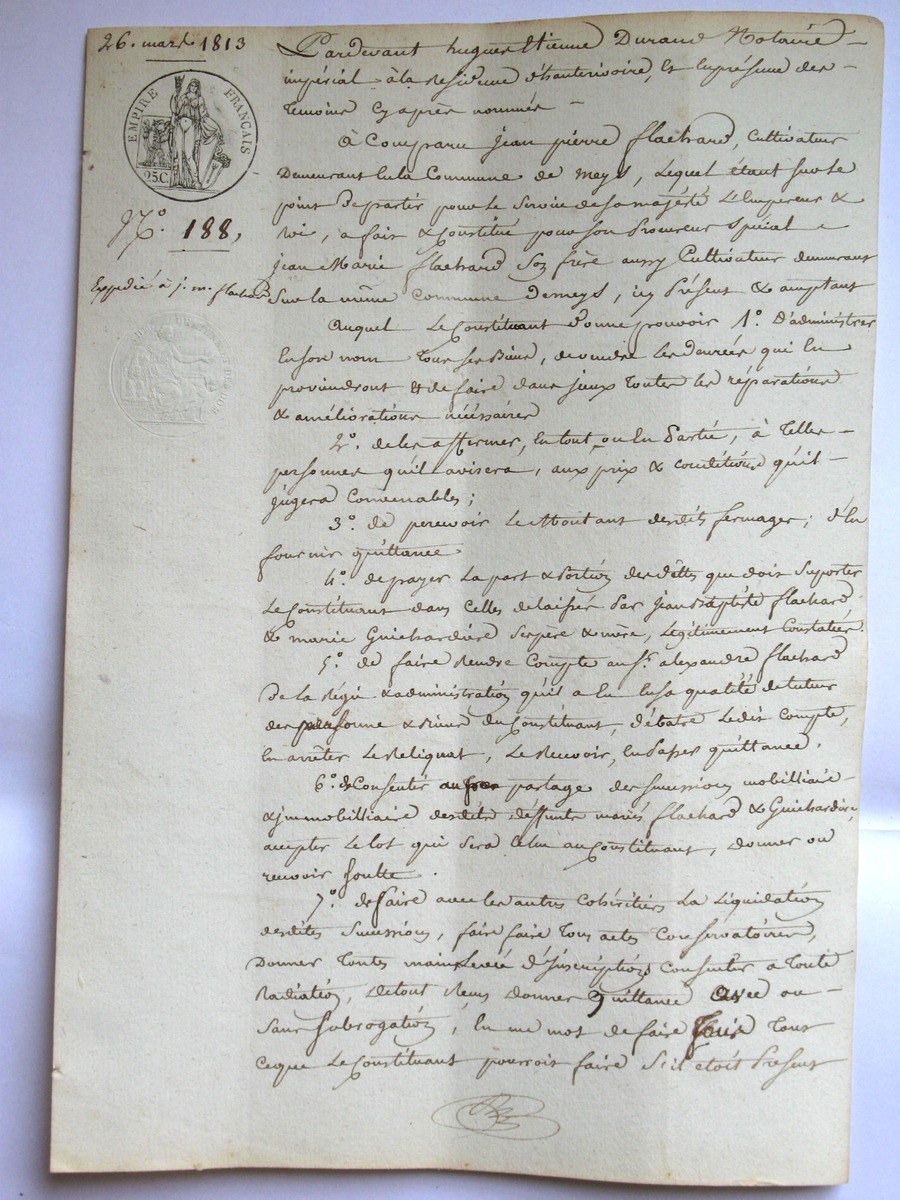 26. mars 1813
EMPIRE FRANÇAIS
25C
N.º 188,
Expédié à j. m. flachard
Pardevant hugues Etienne Durand Notaire
impérial à la Residence d'hauterivoire, et en présence des
temoins cy après nommés
à Comparu jean pierre flachard, Cultivateur
Demeurant en la Commune de meys, Lequel étant sur le
point de partir pour le Service de sa majésté L'Empereur &
Roi, a fait & Constitué pour son Procureur Spécial
jean Marie flachard Son frère aussy Cultivateur demeurant
Sur la même Commune de meys, icy Présent & acceptant
Auquel Le Constituant donne pouvoir 1º. D'administrer
En son nom tous ses Biens, de vendre les denrées qui En
proviendront & de faire dans jceux toutes les réparations
& améliorations nécéssaires
2º. de les affermer, En tout, ou En Partie, à telles
personnes qu'il avisera, aux prix & conditions qu'il
jugera Convenables;
3º. de percevoir Le Montant desdits fermages; d'En
fournir quittance
4º. de payer La part & Portion des dèttes que doit Suporter
Le Constituant dans Celles delaissées Par Jean Baptiste flachard
& marie Guichardière Ses père & mère, Légitimement Constatées.
5º. de faire Rendre Compte au Sr. alexandre flachard
De la Régie & administration qu'il a Eu En sa qualité de tuteur
des personne & Biens du Constituant, débatre Ledit Compte,
En arrêter Le Reliquat, Le Recevoir, En Passer quittance.
6º. de Consentir au partage des Successions mobilliaire
& jmmobilliaire desdits deffunts mariés flachard & Guichardière,
accepter Le lot qui Sera Echu au Constituant, donner ou
recevoir Soulte.
7º. de faire avec les autres Cohéritiers La Liquidation
desdites Successions, faire faire Tous actes Conservatoires,
Donner toutes mainlevée d'jnscriptions Consentir a toute
Radiation, De tout Reçus Donner quittance avec ou
Sans Subrogation, En un mot de faire Tout
ce que Le Constituant pourroit faire S'il étoit Présent